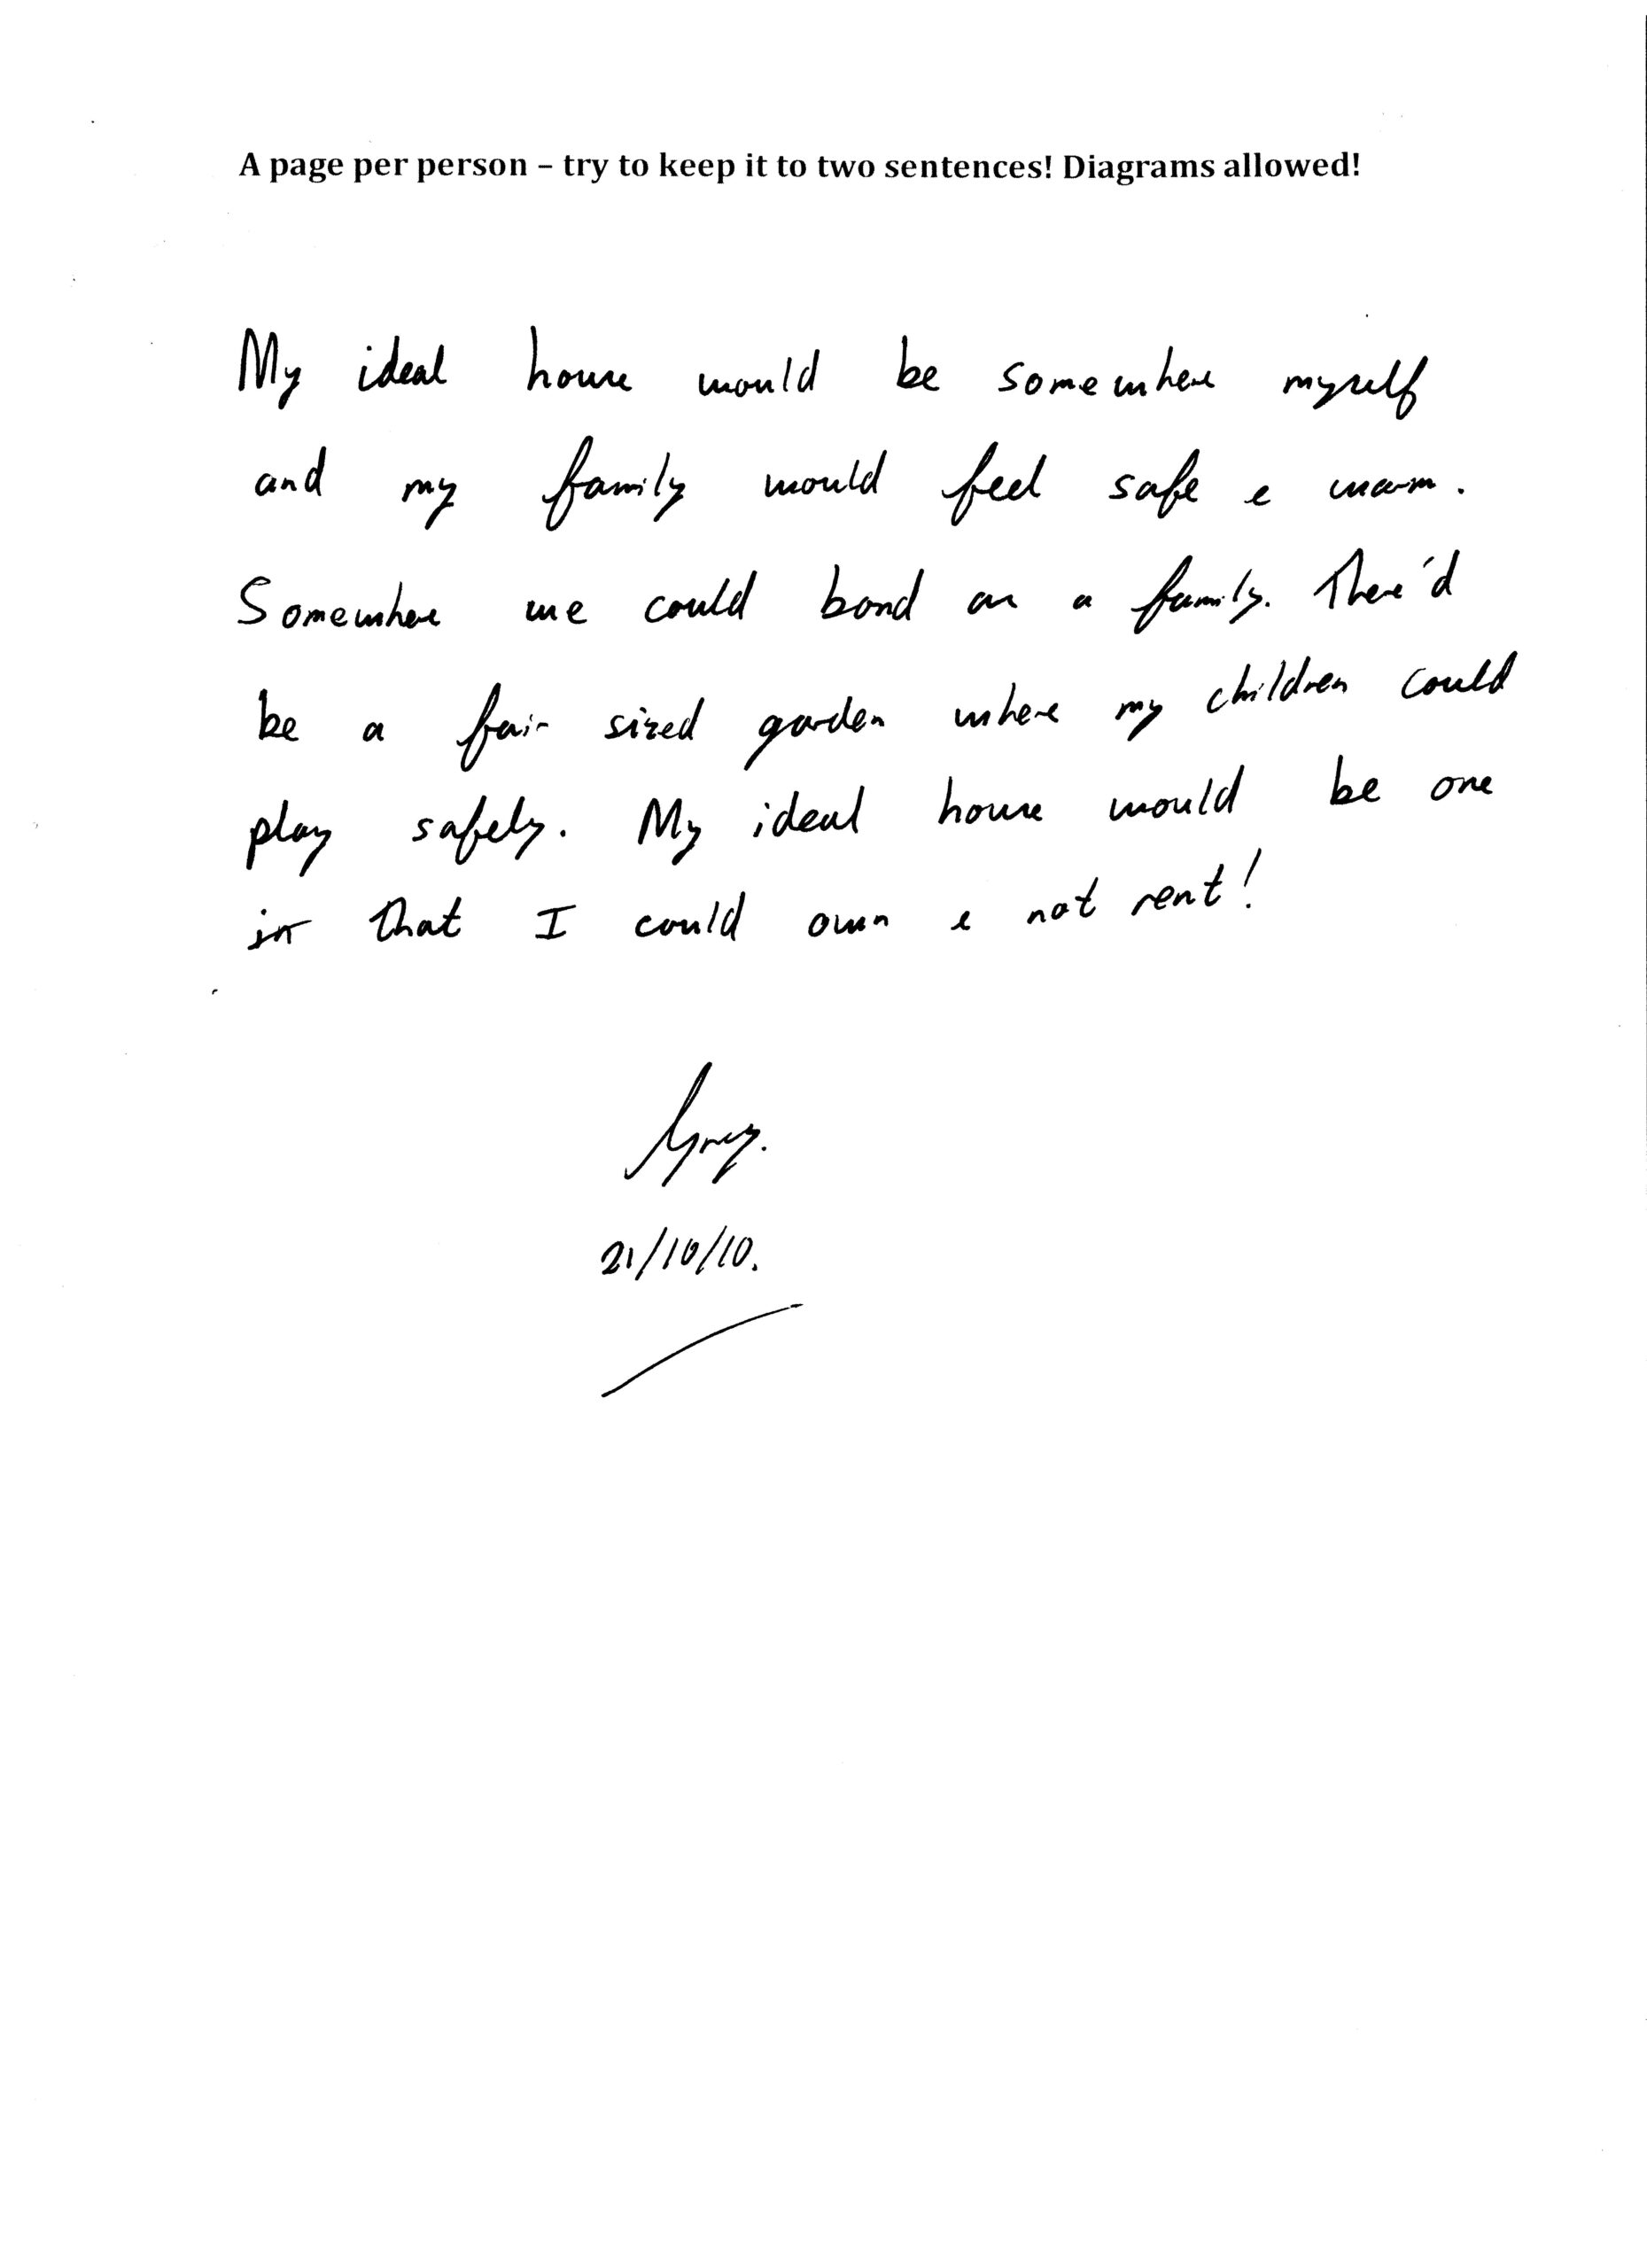 A page per person – try to keep it to two sentences! Diagrams allowed!
My ideal house would be somewhere myself
and my family would feel safe & warm.
Somewhere we could bond as a family. There'd
be a fair sized garden where my children could
play safely. My ideal house would be one
in that I could own & not rent!
21/10/10.